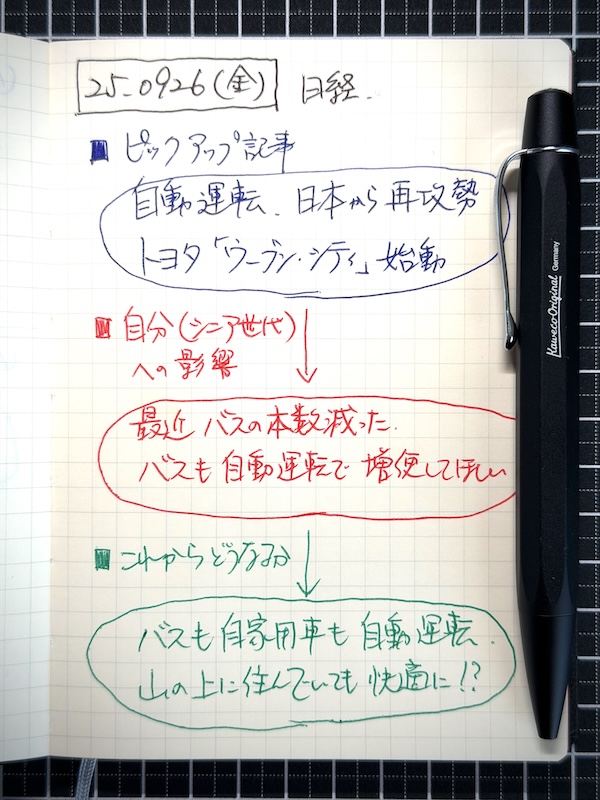 25-0926(金) 日経.
■ピックアップ記事
自動運転、日本から再攻勢
トヨタ「ウーブン・シティ」始動
■自分(シニア世代)
への影響
最近バスの本数減った.
バスも自動運転で増便してほしい
■これからどうなるか
バスも自家用車も自動運転.
山の上に住んでいても快適に!?
Kaweco Original Germany